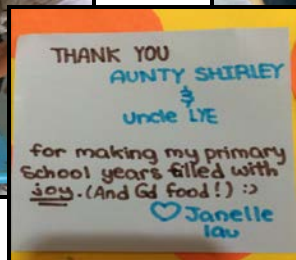 THANK YOU
AUNTY SHIRLEY
&
Uncle LYE
for making my primary
School years filled with
joy. (And Gd food!) :>
♡ Janelle
lau